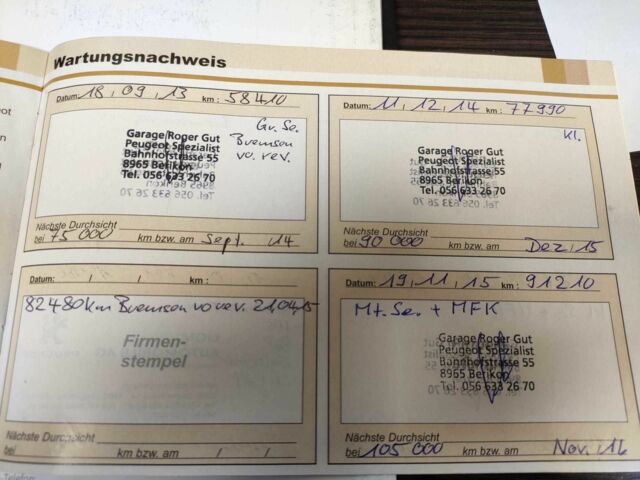 Wartungsnachweis
Datum: 18, 09, 13 km: 58410
Gr. Se.
Bremsen
vo. rev.
Garage Roger Gut
Peugeot Spezialist
Bahnhofstrasse 55
8965 Berikon
Tel. 056 633 26 70
Nächste Durchsicht
bei 75 000 km bzw. am Sept. 14
Datum: 11, 12, 14 km: 77990
Kl.
Garage Roger Gut
Peugeot Spezialist
Bahnhofstrasse 55
8965 Berikon
Tel. 056 633 26 70
Nächste Durchsicht
bei 90 000 km bzw. am Dez, 15
Datum: / / km:
82480 km Bremsen vo rev. 21,04,15
Firmen-
stempel
Nächste Durchsicht
bei km bzw. am
Datum: 19, 11, 15 km: 91210
Mt. Se. + MFK
Garage Roger Gut
Peugeot Spezialist
Bahnhofstrasse 55
8965 Berikon
Tel. 056 633 26 70
Nächste Durchsicht
bei 105 000 km bzw. am Nov. 16
Telefon: